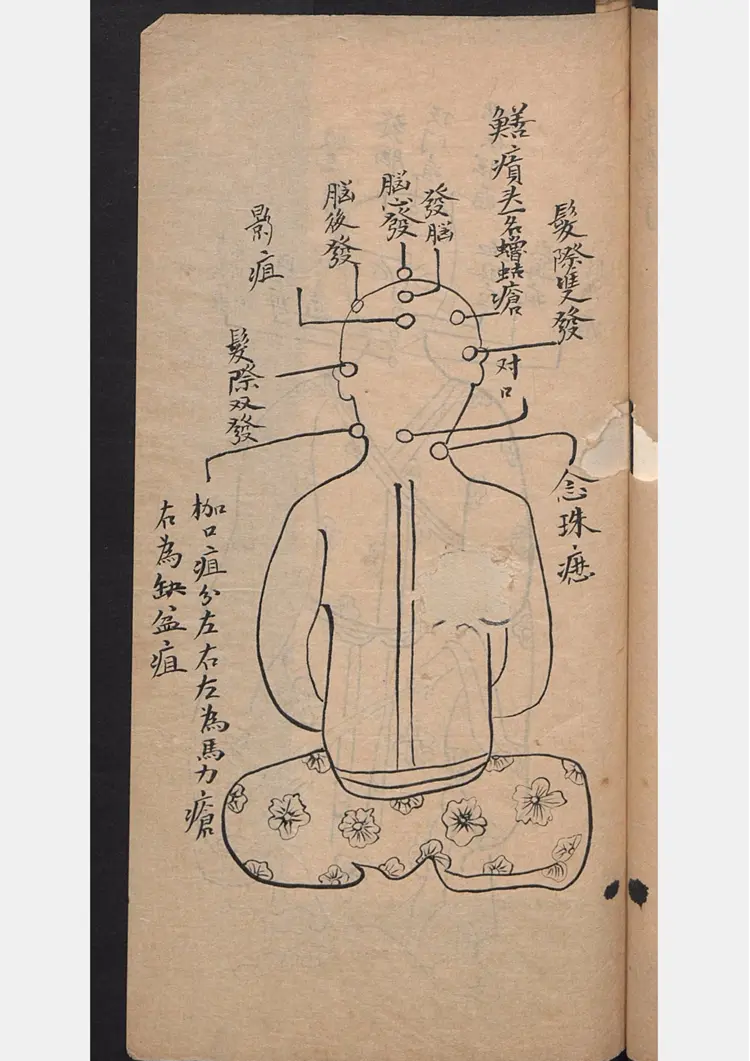 髮際雙發
鱔㿉头一名蟮蛄瘡
对口
念珠瘛
發腦
腦心發
腦後發
影疽
髮際双發
枷口疽分左右左為馬力瘡
右為缺盆疽